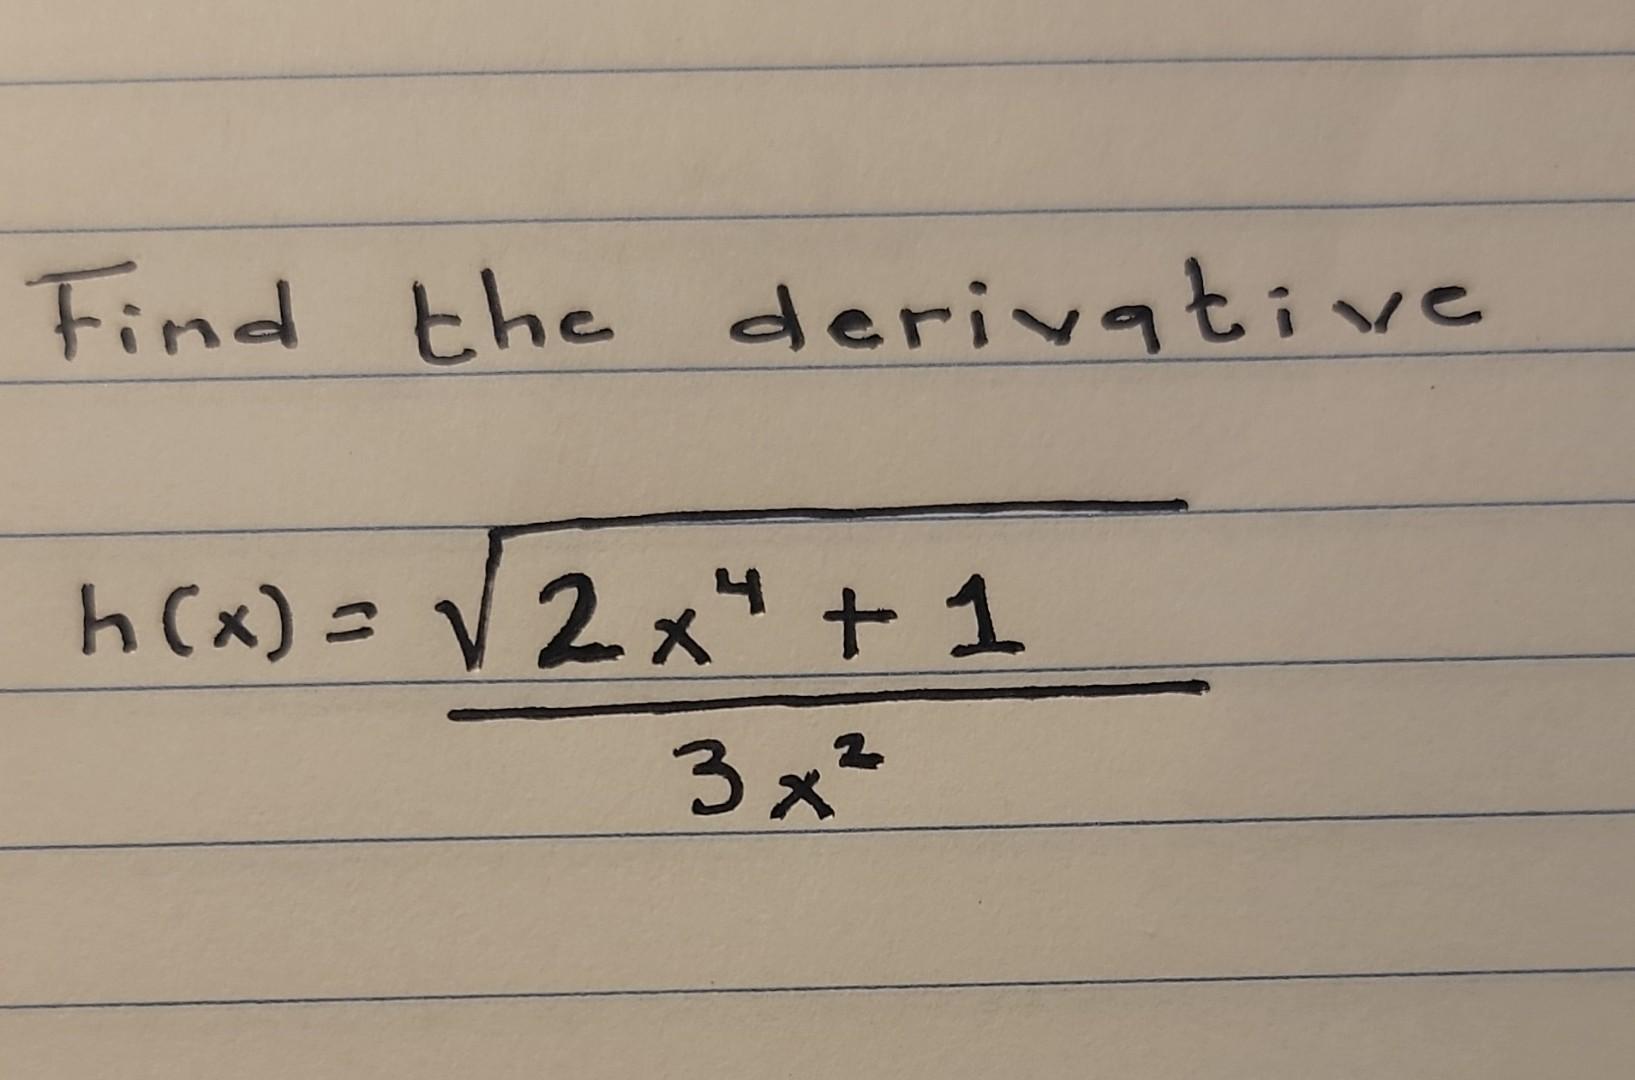 Find the derivative
h(x) = √(2x⁴ + 1)
3x²